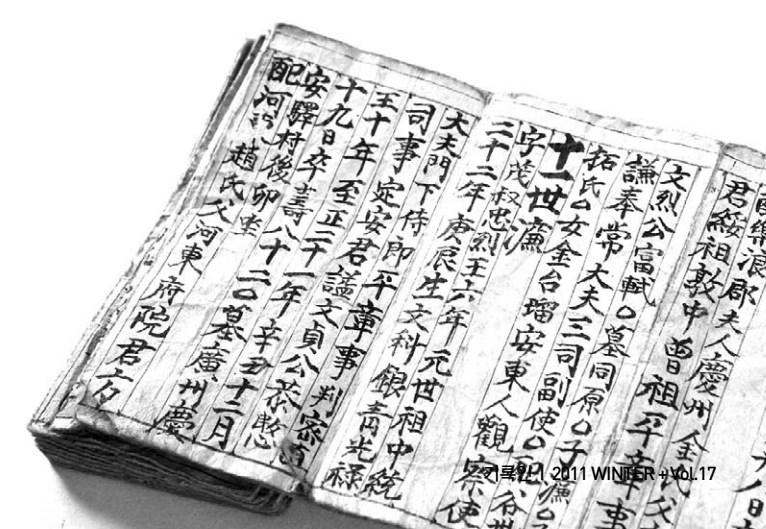 配樂浪郡夫人慶州金氏父
君綏祖敦中曾祖平章事
文烈公富軾〇墓同原〇子濂〇
謙奉常大夫三司副使〇
拓氏〇女金台瑠安東人觀察使
十一世濂
字茂叔忠烈王六年元世祖中統
二十二年庚辰生文科銀青光祿
大夫門下侍郎平章事判密直
司事定安君諡文貞公恭愍
王十年至正二十一年辛丑十二月
十九日卒壽八十二〇墓廣州慶
安驛村後卯坐
配河東趙氏父河東府院君
기록인 | 2011 WINTER + Vol.17